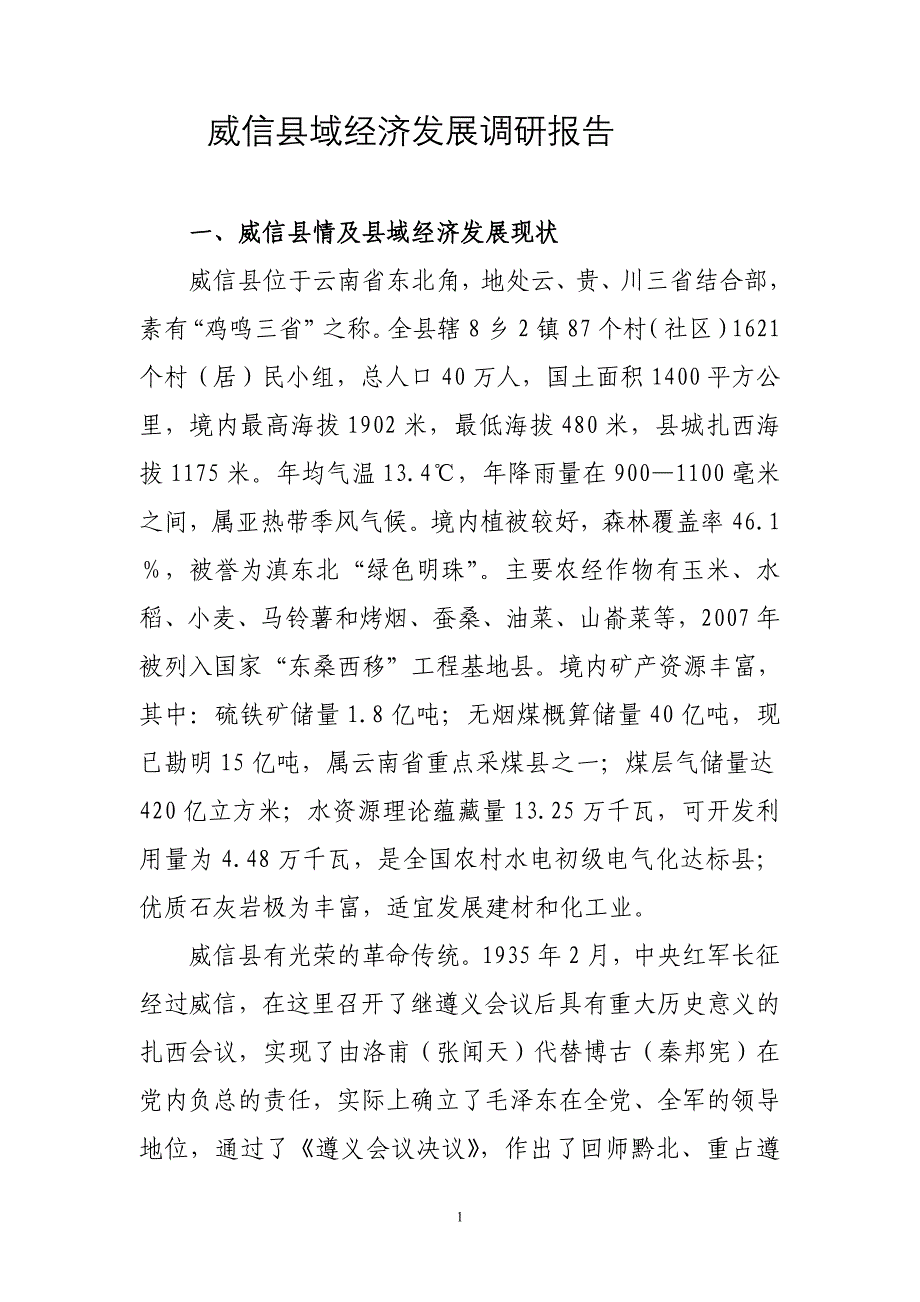 威信县域经济发展调研报告
一、威信县情及县域经济发展现状
威信县位于云南省东北角，地处云、贵、川三省结合部，
素有“鸡鸣三省”之称。全县辖 8 乡 2 镇 87 个村（社区）1621
个村（居）民小组，总人口 40 万人，国土面积 1400 平方公
里，境内最高海拔 1902 米，最低海拔 480 米，县城扎西海
拔 1175 米。年均气温 13.4℃，年降雨量在 900—1100 毫米
之间，属亚热带季风气候。境内植被较好，森林覆盖率 46.1
%，被誉为滇东北“绿色明珠”。主要农经作物有玉米、水
稻、小麦、马铃薯和烤烟、蚕桑、油菜、山嵛菜等，2007 年
被列入国家“东桑西移”工程基地县。境内矿产资源丰富，
其中：硫铁矿储量 1.8 亿吨；无烟煤概算储量 40 亿吨，现
已勘明 15 亿吨，属云南省重点采煤县之一；煤层气储量达
420 亿立方米；水资源理论蕴藏量 13.25 万千瓦，可开发利
用量为 4.48 万千瓦，是全国农村水电初级电气化达标县；
优质石灰岩极为丰富，适宜发展建材和化工业。
威信县有光荣的革命传统。1935 年 2 月，中央红军长征
经过威信，在这里召开了继遵义会议后具有重大历史意义的
扎西会议，实现了由洛甫（张闻天）代替博古（秦邦宪）在
党内负总的责任，实际上确立了毛泽东在全党、全军的领导
地位，通过了《遵义会议决议》，作出了回师黔北、重占遵
1